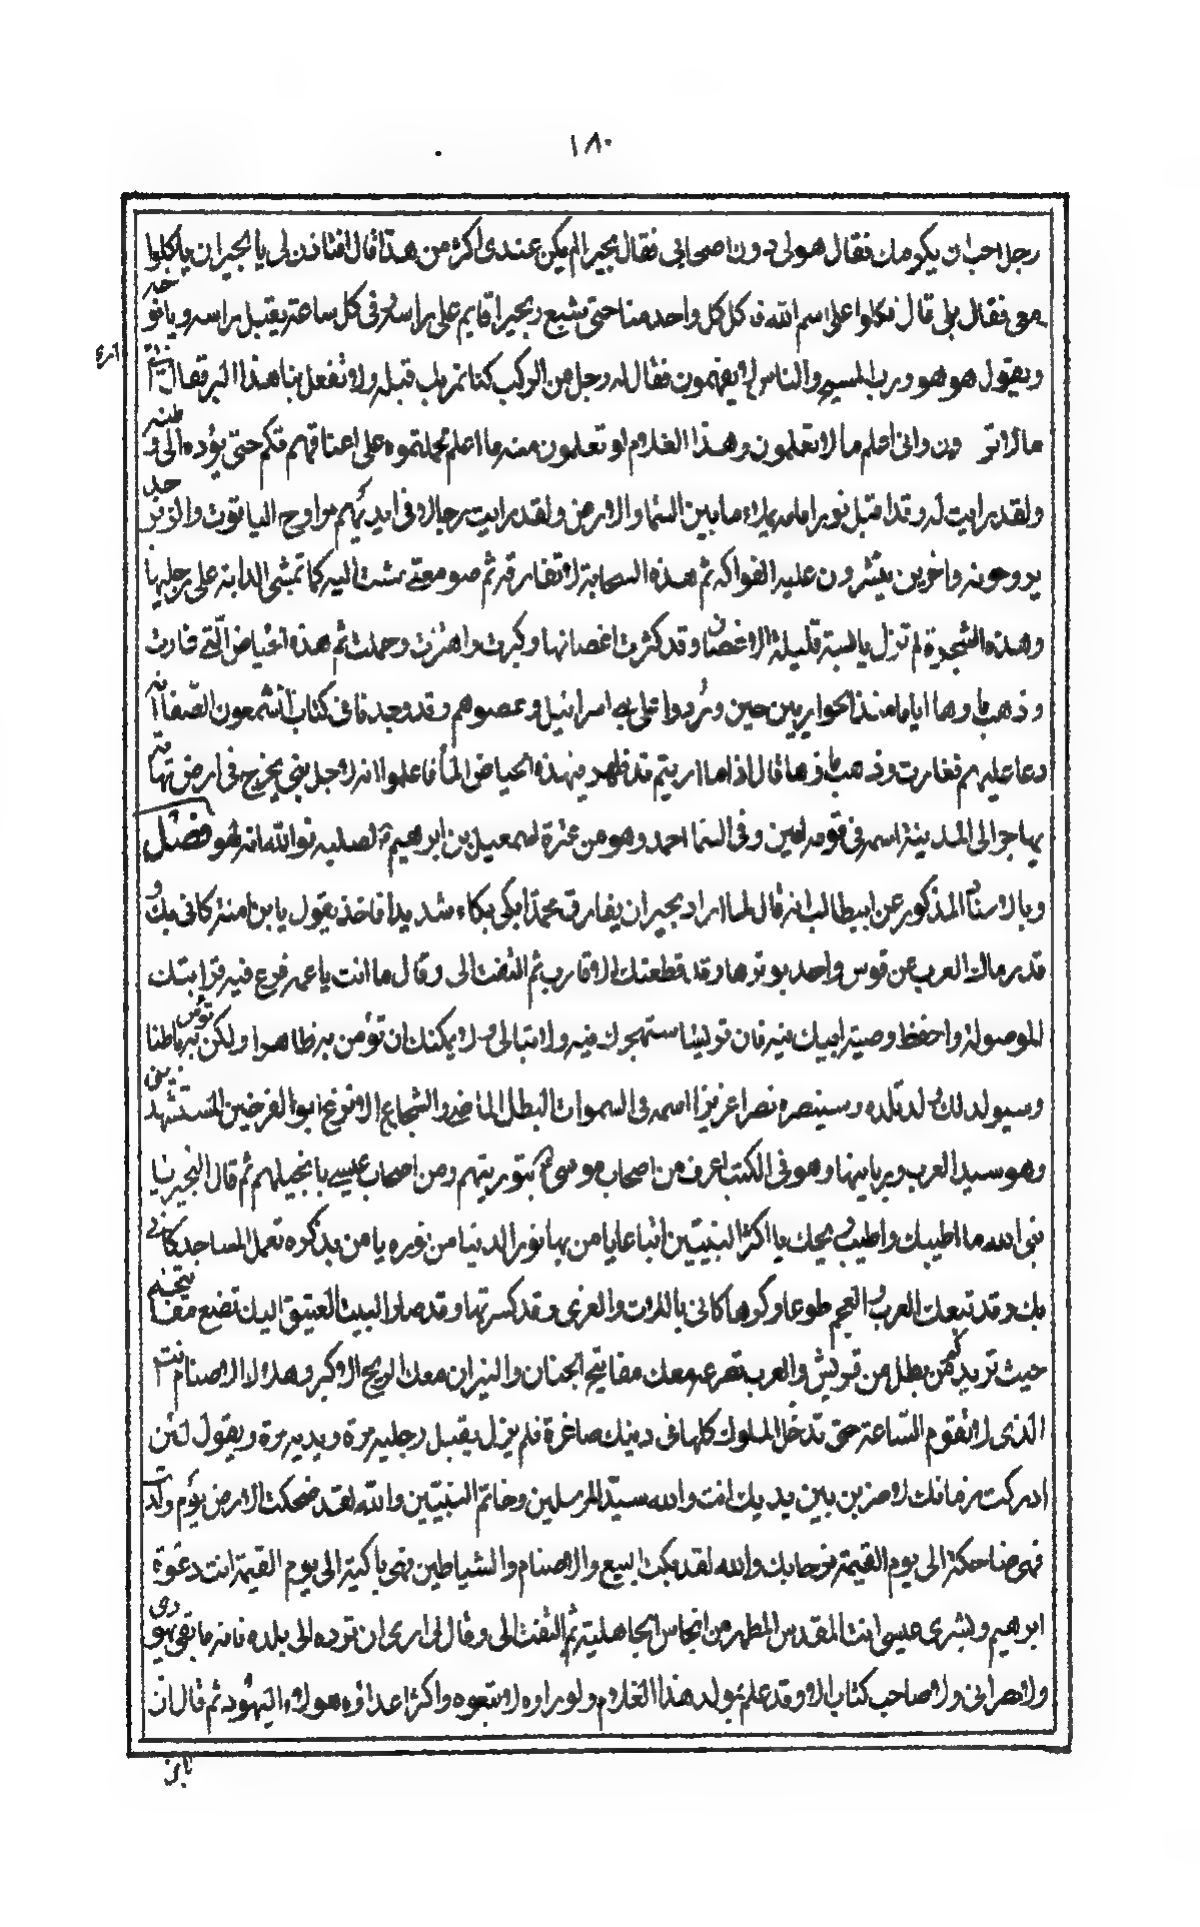 ١٨٠
رجل احب ان يكرمك فقال هو لى دون اصحابى فقال بحيرا لم يكن عندى اكثر من هذا قال افتاذن لى يا بحيرا ان ياكلوا
معى فقال بلى قال كلوا على اسم الله فاكل كل واحد منا حتى شبع وبحيرا قايم على راسه فى كل ساعة يقبل راسه ويافوخه
ويقول هو هو ورب المسيح والناس لا يفقهون فقال له رجل من الركب كنا نمر بك قبله ولا تفعل بنا هذا البر فقال انى ارى
ما لا ترون وانى اعلم ما لا تعلمون وهذا الغلام لو تعلمون منه ما اعلم لحملتموه على اعناقكم حتى تردوه الى وطنه
ولقد رايت له وقد اقبل نورا امامه يملاء ما بين السماء والارض ولقد رايت رجالا فى ايديهم مراوح الياقوت والزبرجد
يروحونه واخرين ينثرون عليه الفواكه ثم هذه السحابة لا تفارقه ثم صومعتى مشت اليه كما تمشى الدابة على رجليها
وهذه الشجرة لم تزل يابسة قليلة الاغصان وقد كثرت اغصانها وكبرت واهتزت وحملت ثم هذه الحياض التى غارت
وذهب ماوها ايام منذ الحواريين حين وردوا على بنى اسرائيل وعصوهم وقد وجدنا فى كتاب شمعون الصفا انه
دعا عليهم فغارت وذهب ماوها قال اذا ما اريتم قد ظهر فى هذه الحياض الماء فاعلموا انه لاجل نبى يخرج فى ارض تهامة
يهاجر الى المدينة اسمه فى قومه امين وفى السماء احمد وهو من عترة اسمعيل بن ابرهيم لصلبه فوالله انه لهو فصل
وبالاسناد المذكور عن ابيطالب انه قال لما اراد بحيرا ان يفارق محمدا بكى بكاء شديدا فاخذ يقول يا بن امنة كانى بك و
قد رماك العرب عن قوس واحد بوترها وقد قطعتك الاقارب ثم التفت الى وقال ما انت يا عم فرع فيه قرابتك
الموصولة واحفظ وصية ابيك فيه فان قريشا ستهجرك فيه ولا تبالى و لا يمكنك ان تؤمن به ظاهرا ولكن تؤمن به باطنا
وسيولد لك ولد تلده وسينصره نصرا عزيزا اسمه فى السموات البطل الماضى والشجاع الانزع ابو الفرخين المستشهدين
وهو سيد العرب وربانيها وهو فى الكتب اعرف من اصحاب موسى بتوريتهم ومن اصحاب عيسى بانجيلهم ثم قال البحيرا يا
نبى الله ما اطيبك واطيب ريحك يا اكثر النبيين اتباعا يا من بها نور الدنيا من نوره يا من بذكره تعمل المساجد كانى
بك وقد تبعك العرب والعجم طوعا وكرها كانى باللات والعزى وقد كسرتها وقد صار البيت العتيق اليك تضع مفاتيحه
حيث تريد كم من بطل من قريش والعرب تصرعه معك مفاتيح الجنان والنيران معك الربح الاكبر وهلاك الاصنام انت
الذى لا تقوم الساعة حتى تدخل الملوك كلها فى دينك صاغرة فلم يزل يقبل رجليه مرة ويديه مرة ويقول لئن
ادركت زمانك لاضربن بين يديك انت والله سيد المرسلين وخاتم النبيين والله لقد ضحكت الارض يوم ولدت
فهى ضاحكة الى يوم القيمة فرحا بك والله لقد بكت البيع والاصنام والشياطين فهى باكية الى يوم القيمة انت دعوة
ابرهيم وبشرى عيسى انت المقدس المطهر من انجاس الجاهلية ثم التفت الى وقال لى ارى ان ترده الى بلده فانه ما بقى يهودى
ولا نصرانى ولا صاحب كتاب الا وقد علم بولد هذا الغلام ولو راوه لابتغوه واكثر اعدائه هولاء اليهود ثم قال ان